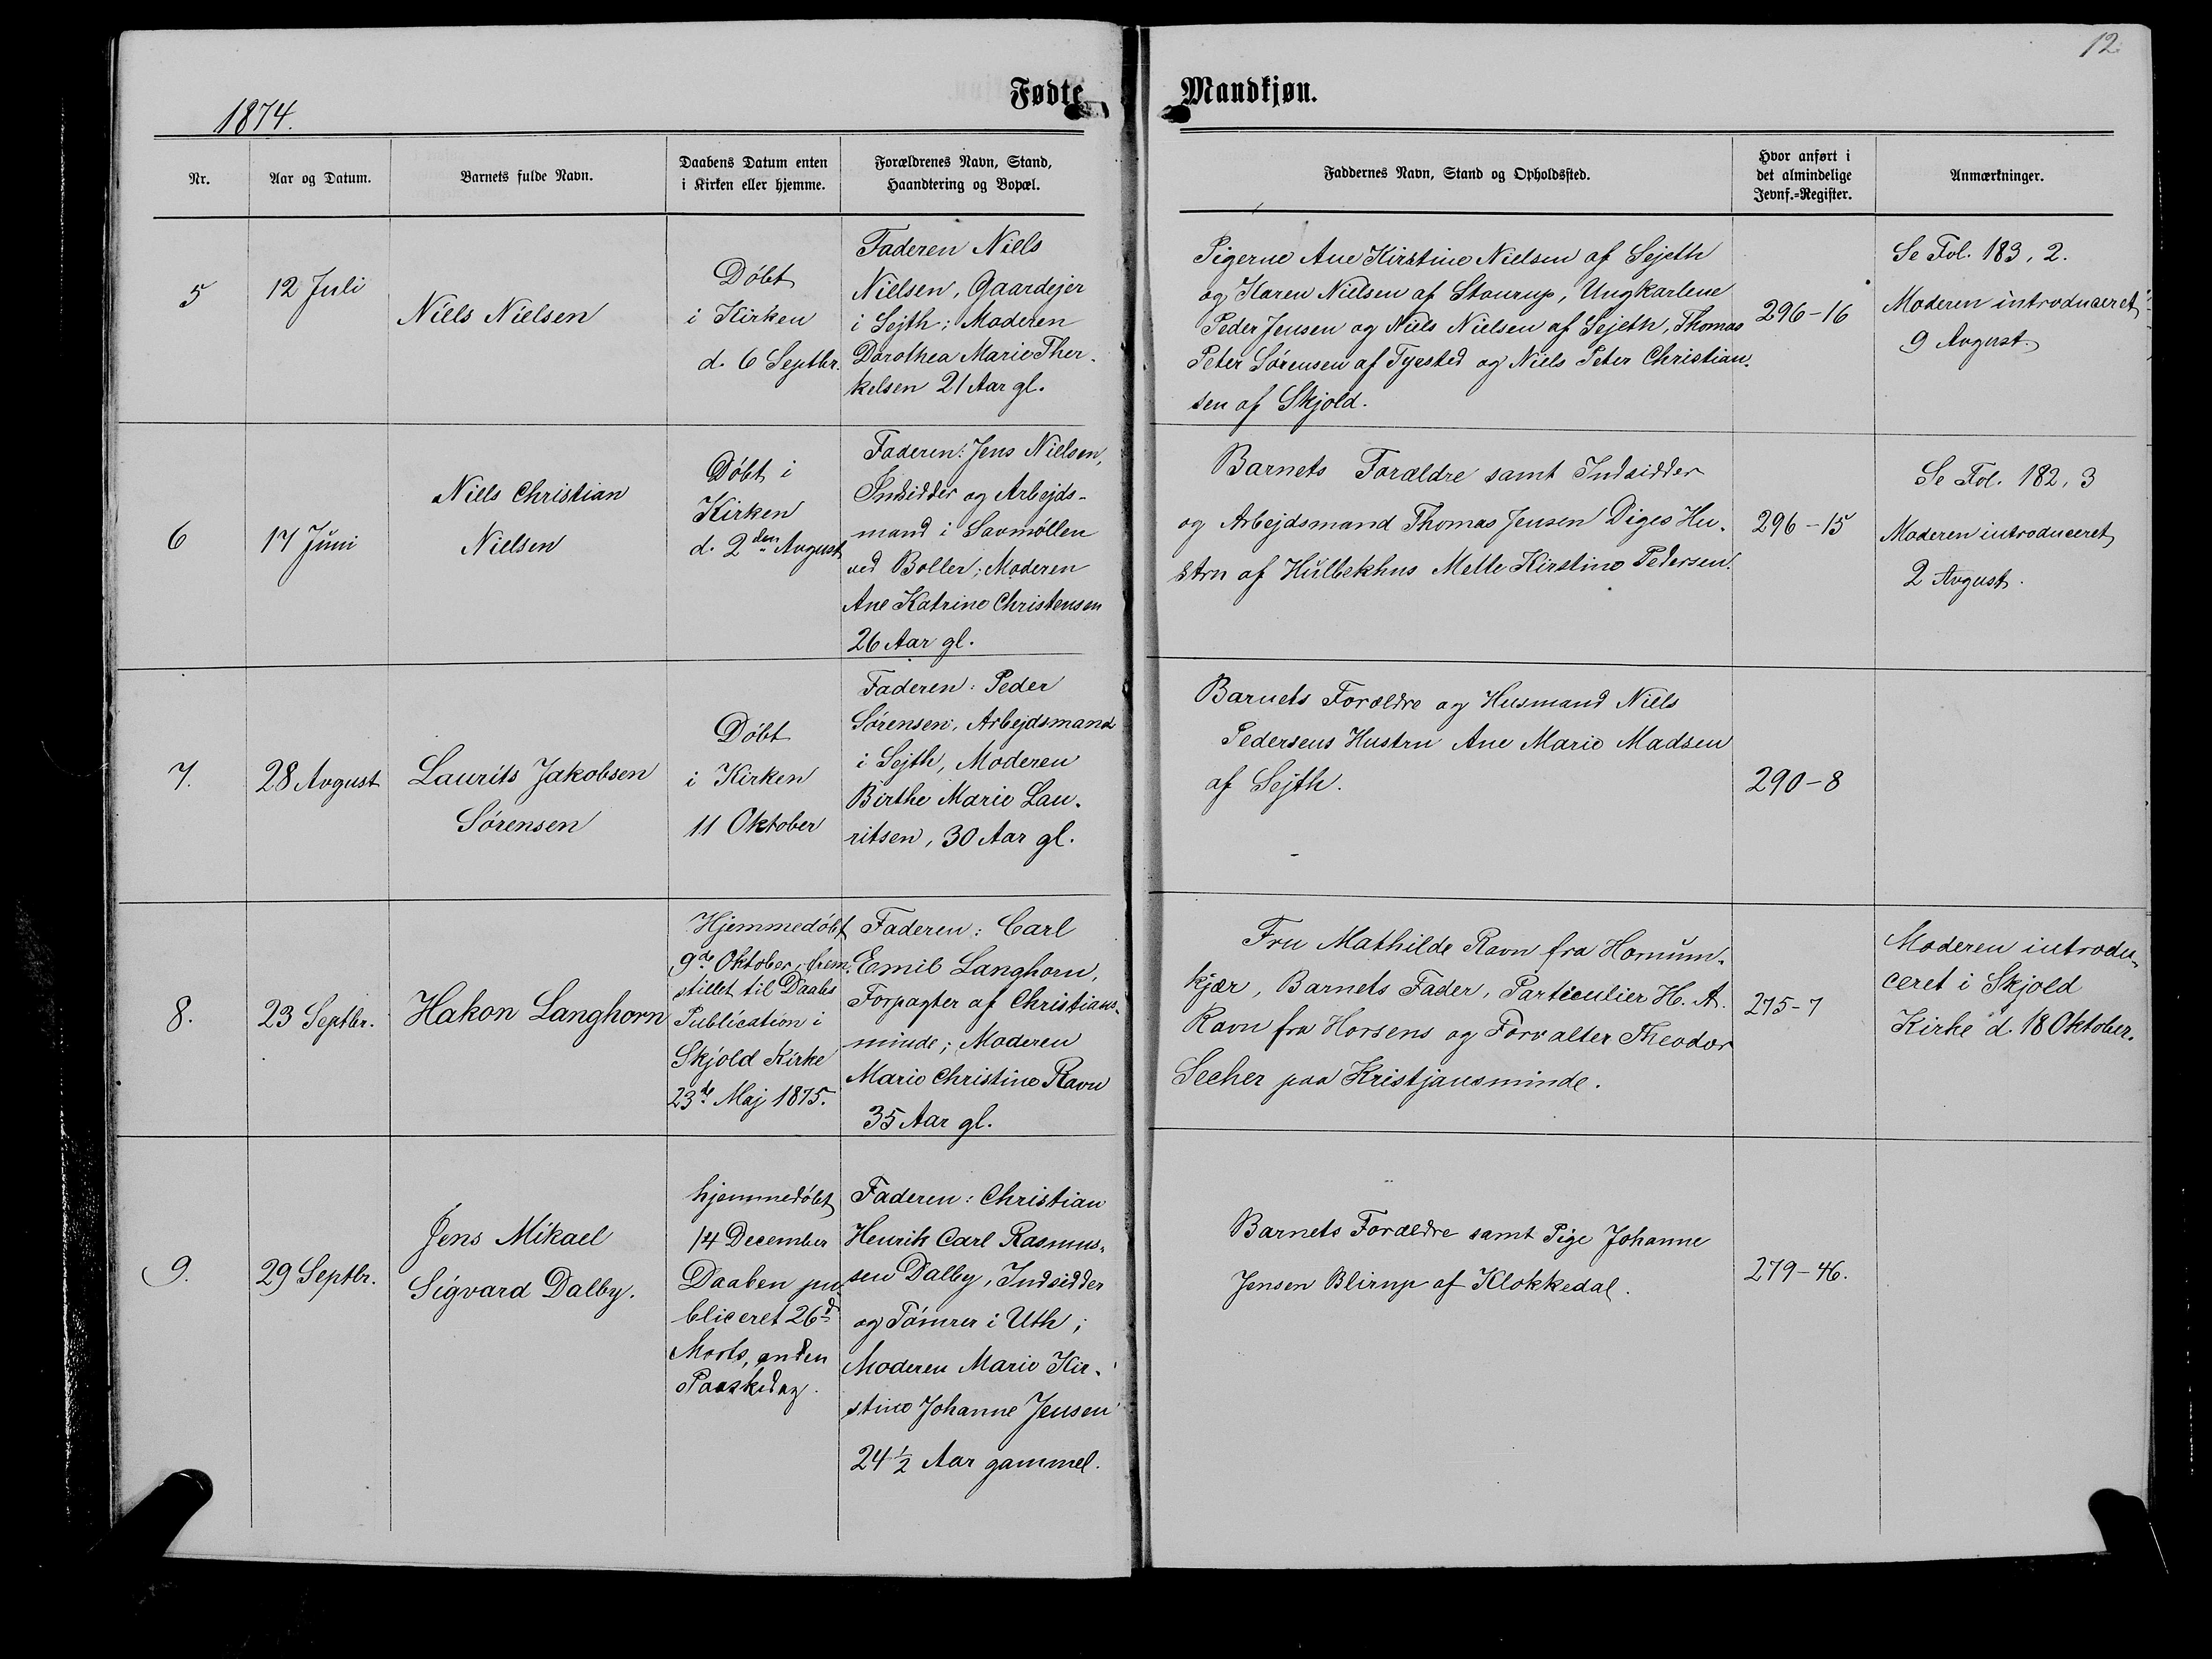 12
Fødte Mandkjøn.
1874.
Nr.
Aar og Datum.
Barnets fulde Navn.
Daabens Datum enten
i Kirken eller hjemme.
Forældrenes Navn, Stand,
Haandtering og Bopæl.
Faddernes Navn, Stand og Opholdssted.
Hvor anført i
det almindelige
Jevnf.=Register.
Anmærkninger.
5
12 Juli
Niels Nielsen
Døbt
i Kirken
d. 6 Septbr.
Faderen Niels
Nielsen, Gaardejer
i Sejth; Moderen
Dorothea Marie Ther-
kelsen 21 Aar gl.
Pigerne Ane Kirstine Nielsen af Sejeth
og Karen Nielsen af Stourup, Ungkarlene
Peder Jensen og Niels Nielsen af Sejeth, Thomas
Peter Sørensen af Tyrsted og Niels Peter Christian-
sen af Skjold.
296-16
Se Fol. 183, 2.
Moderen introduceret
9 Avgust.
6
17 Juni
Niels Christian
Nielsen
Døbt i
Kirken
d. 2den Avgust
Faderen: Jens Nielsen,
Indsidder og Arbejds-
mand i Savmøllen
ved Boller; Moderen
Ane Katrine Christensen
26 Aar gl.
Barnets Forældre samt Indsidder
og Arbejdsmand Thomas Jensen Diges Hu-
stru af Hulbekhus Mette Kirstine Pedersen.
296-15
Se Fol. 182, 3
Moderen introduceret
2 Avgust.
7.
28 Avgust
Laurits Jakobsen
Sørensen
Døbt
i Kirken
11 Oktober
Faderen: Peder
Sørensen, Arbejdsmand
i Sejth, Moderen
Birthe Marie Lau-
ritsen, 30 Aar gl.
Barnets Forældre og Husmand Niels
Pedersens Hustru Ane Marie Madsen
af Sejth.
290-8
8.
23 Septbr.
Hakon Langhorn
Hjemmedøbt
9de Oktober, frem-
stillet til Daabs
Publication i
Skjold Kirke
23de Maj 1875.
Faderen: Carl
Emil Langhorn,
Forpagter af Christians-
minde; Moderen
Marie Christine Ravn
35 Aar gl.
Fru Mathilde Ravn fra Hornum-
kjær, Barnets Fader, Particulier H. A.
Ravn fra Horsens og Forvalter Theodor
Secher paa Kristjansminde.
275-7
Moderen introdu-
ceret i Skjold
Kirke d. 18 Oktober.
9.
29 Septbr.
Jens Mikael
Sigvard Dalby.
hjemmedøbt
14 December
Daaben pu-
bliceret 26d
Marts, anden
Paaskedag.
Faderen: Christian
Henrik Carl Rasmus-
sen Dalby, Indsidder
og Tømrer i Uth;
Moderen Marie Kir-
stine Johanne Jensen
24 1/2 Aar gammel.
Barnets Forældre samt Pige Johanne
Jensen Blirup af Klokkedal.
279-46.